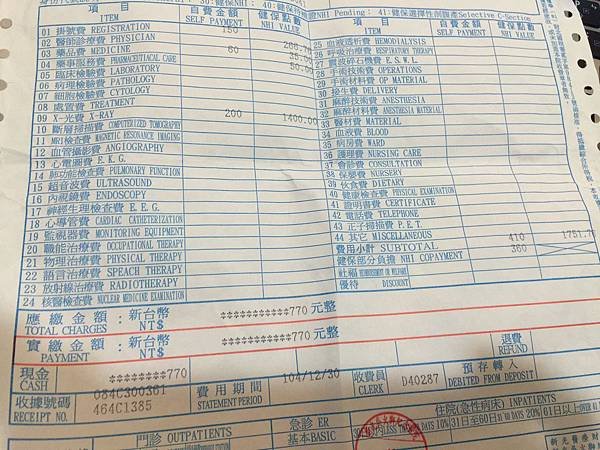 項目 ITEM
自費金額 SELF PAYMENT
健保點數 NHI VALUE
01 掛號費 REGISTRATION 150
02 醫師診療費 PHYSICIAN
03 藥品費 MEDICINE 60
04 藥事服務費 PHARMACEUTIACAL CARE
05 臨床檢驗費 LABORATORY
06 病理檢驗費 PATHOLOGY
07 細胞檢驗費 CYTOLOGY
08 處置費 TREATMENT
09 X-光費 X-RAY 200 1400.00
10 斷層掃描費 COMPUTERIZED TOMOGRAPHY
11 MRI檢查費 MAGNETIC RESONANCE IMAGING
12 血管攝影費 ANGIOGRAPHY
13 心電圖費 E.K.G.
14 肺功能檢查費 PULMONARY FUNCTION
15 超音波費 ULTRASOUND
16 內視鏡費 ENDOSCOPY
17 神經生理檢查費 E.E.G.
18 心導管費 CARDIAC CATHETERIZATION
19 監視器費 MONITORING EQUIPMENT
20 職能治療費 OCCUPATIONAL THERAPY
21 物理治療費 PHYSICAL THERAPY
22 語言治療費 SPEACH THERAPY
23 放射線治療費 RADIOTHERAPY
24 核醫檢查費 NUCLEAR MEDICINE EXAMINATION
項目 ITEM
自費金額 SELF PAYMENT
健保點數 NHI VALUE
25 血液透析費 HEMODIALYSIS
26 呼吸治療費 RESPIRATORY THERAPY
27 震波碎石機費 E.S.W.L.
28 手術技術費 OPERATIONS
29 手術材料費 OP MATERIAL
30 接生費 DELIVERY
31 麻醉技術費 ANESTHESIA
32 麻醉材料費 ANESTHESIA MATERIAL
33 醫材費 MATERIAL
34 血液費 BLOOD
35 病房費 WARD
36 護理費 NURSING CARE
37 會診費 CONSULTATION
38 保嬰費 NURSERY
39 伙食費 DIETARY
40 健康檢查費 PHYSICAL EXAMINATION
41 證明書費 CERTIFICATE
42 電話費 TELEPHONE
43 正子掃描費 P.E.T.
44 其它 MISCELLANEOUS
費用小計 SUBTOTAL 410
健保部分負擔 NHI COPAYMENT 360
社福
優待 DISCOUNT
應繳金額：新台幣
TOTAL CHARGES NT$ ************770 元整
實繳金額：新台幣
PAYMENT NT$ ************770 元整
退費 REFUND
現金 CASH ********770
收據號碼 RECEIPT NO. 464C1385
費用期間 STATEMENT PERIOD 104/12/30
收費員 CLERK D40287
預存轉入 DEBITED FROM DEPOSIT
門診 OUTPATIENTS
急診 ER
基本BASIC
住院(急性病床) INPATIENTS